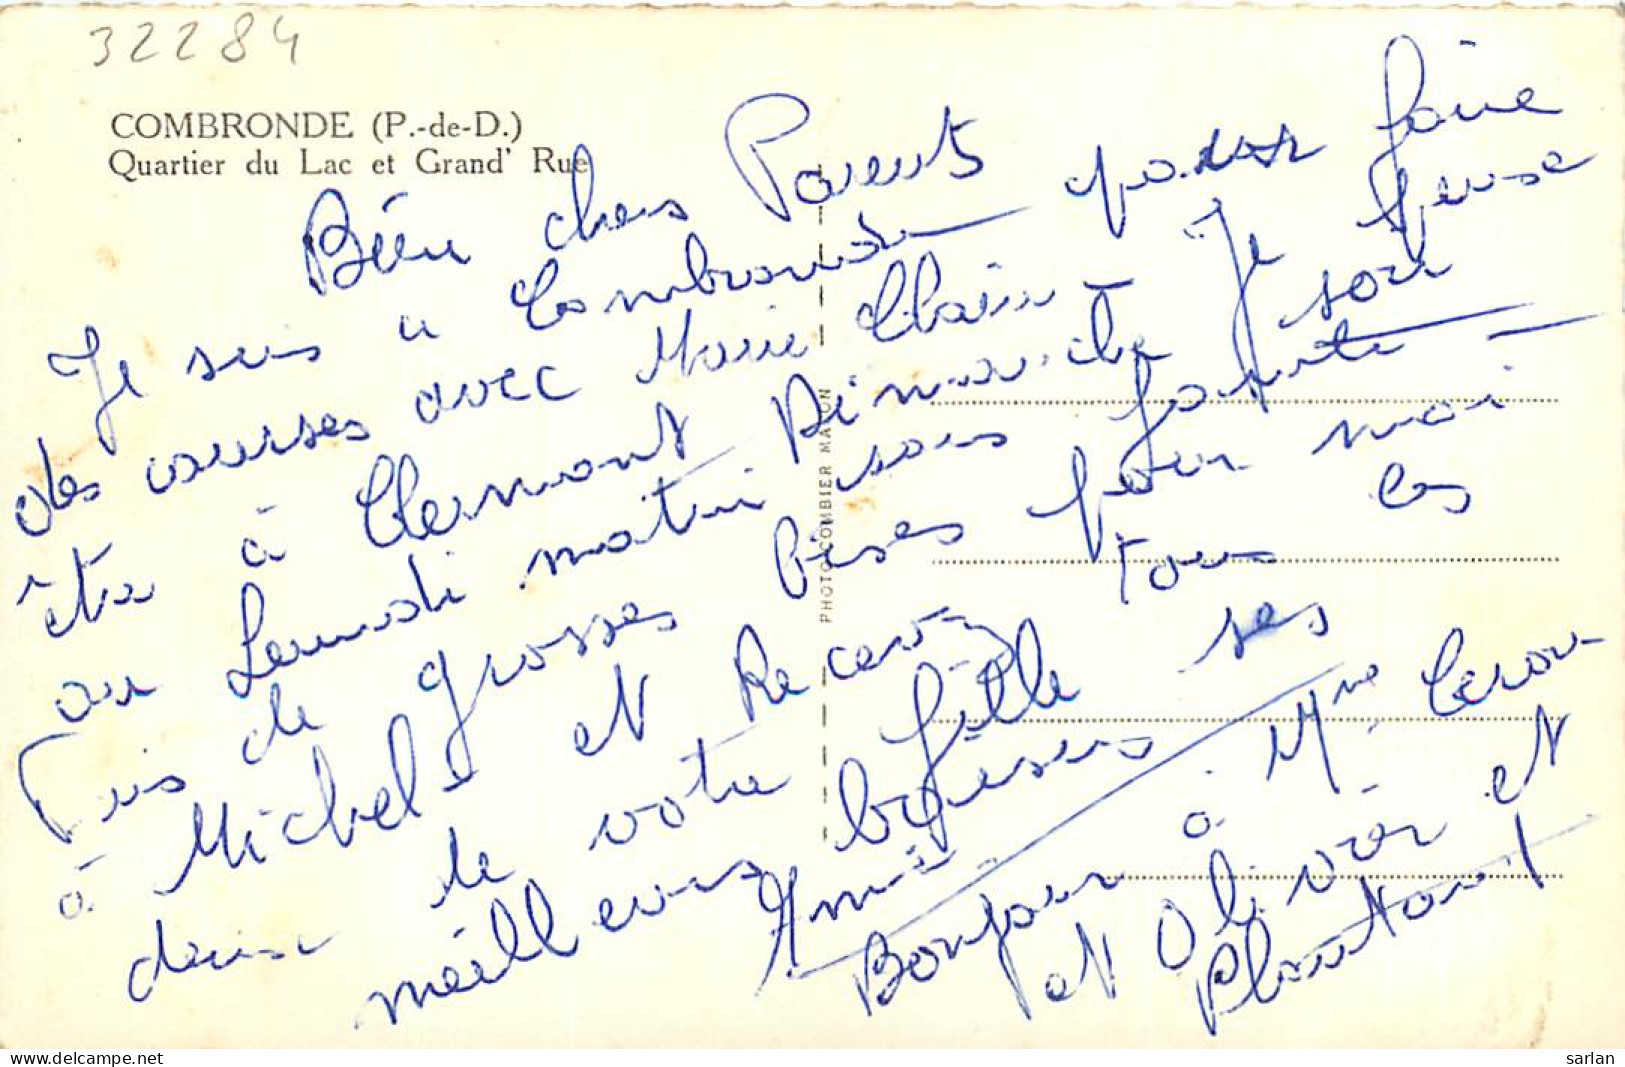 32284
COMBRONDE (P.-de-D.)
Quartier du Lac et Grand' Rue
Bien chers Parents
Je suis a Combronde pour faire
des courses avec Marie Claire Je pense
être à Clermont Dimanche soir
au Lundi matin sans faute
Fais de grosses bises pour moi
à Michel et Recevez tous les
deux de votre fille ses
meilleurs bises
Amie
Bonjour à Mme
et Olivier et
PHOTO COMBIER MACON
www.delcampe.net
sarlan